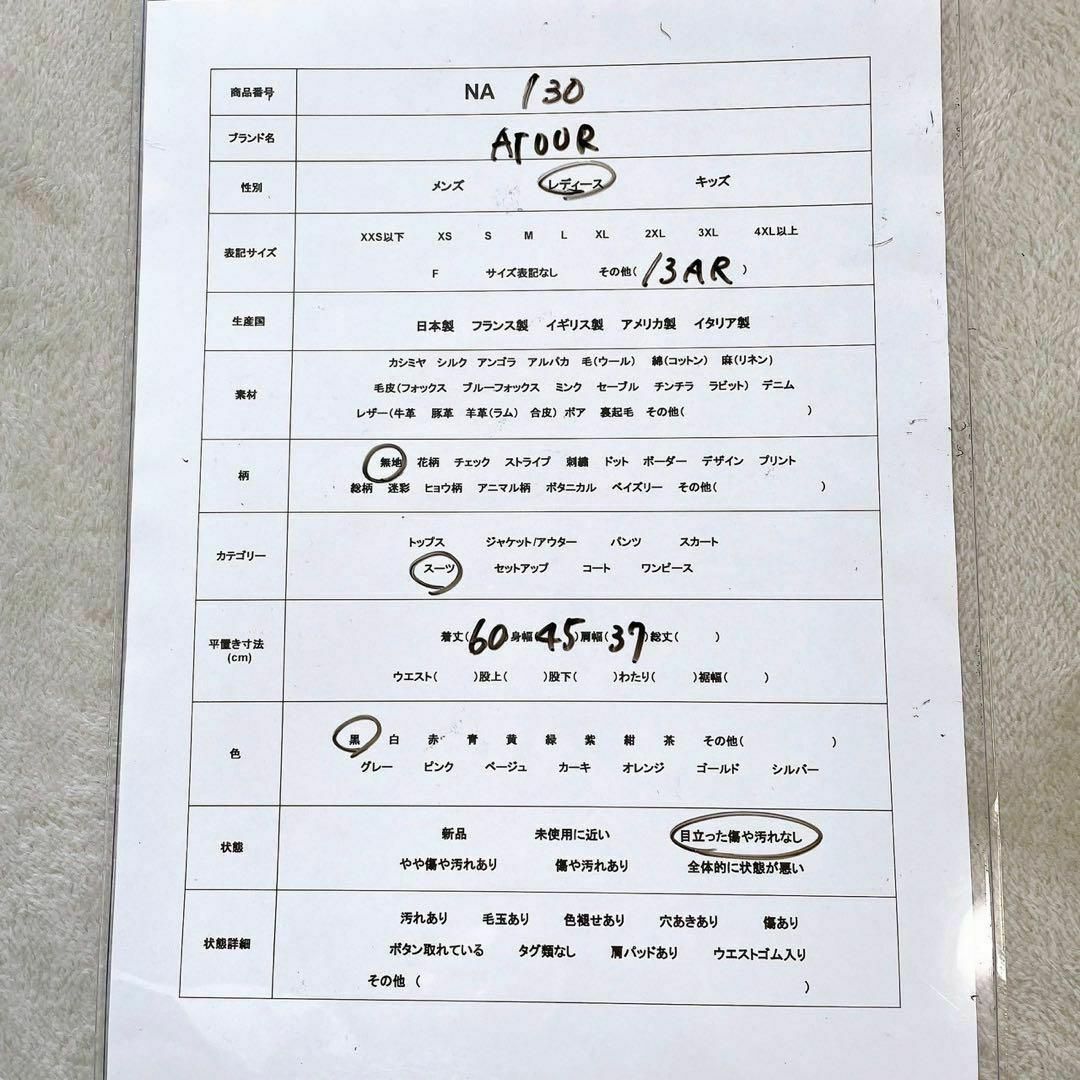 商品番号 NA 130
ブランド名 ATOUR
性別 メンズ レディース キッズ
表記サイズ XXS以下 XS S M L XL 2XL 3XL 4XL以上
F サイズ表記なし その他( 13AR )
生産国 日本製 フランス製 イギリス製 アメリカ製 イタリア製
カシミヤ シルク アンゴラ アルパカ 毛(ウール) 綿(コットン) 麻(リネン)
素材 毛皮(フォックス ブルーフォックス ミンク セーブル チンチラ ラビット) デニム
レザー(牛革 豚革 羊革(ラム) 合皮) ボア 裏起毛 その他( )
柄 無地 花柄 チェック ストライプ 刺繍 ドット ボーダー デザイン プリント
総柄 迷彩 ヒョウ柄 アニマル柄 ボタニカル ペイズリー その他( )
カテゴリー トップス ジャケット/アウター パンツ スカート
スーツ セットアップ コート ワンピース
平置き寸法 着丈( 60 )身幅( 45 )肩幅( 37 )総丈( )
(cm) ウエスト( )股上( )股下( )わたり( )裾幅( )
色 黒 白 赤 青 黄 緑 紫 紺 茶 その他( )
グレー ピンク ベージュ カーキ オレンジ ゴールド シルバー
状態 新品 未使用に近い 目立った傷や汚れなし
やや傷や汚れあり 傷や汚れあり 全体的に状態が悪い
状態詳細 汚れあり 毛玉あり 色褪せあり 穴あきあり 傷あり
ボタン取れている タグ類なし 肩パッドあり ウエストゴム入り
その他 ( )